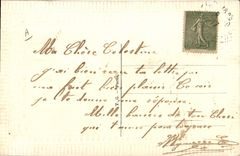 Ma Chère Celestine
j'ai bien reçu ta lettre qui
ma fait bien plaisir
je te donne une réponse
Mille baisers de ton Cher
qui t'aime pour toujours